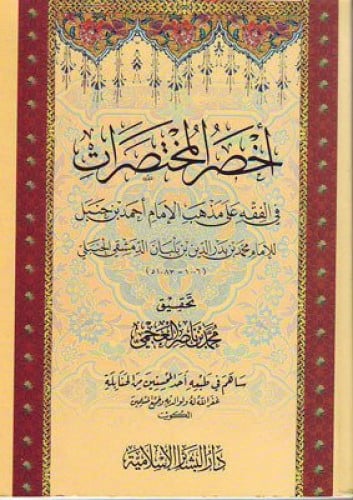 أخصر المختصرات
في الفقه على مذهب الإمام أحمد بن حنبل
للإمام محمد بن بدر الدين بن بلبان الدمشقي الحنبلي
(١٠٠٦ - ١٠٨٣ه)
تحقيق
محمد بن ناصر العجمي
ساهم في طبعه أحد المحسنين من الحنابلة
غفر الله له ولوالديه وجميع المسلمين
الكويت
دار البشائر الإسلامية